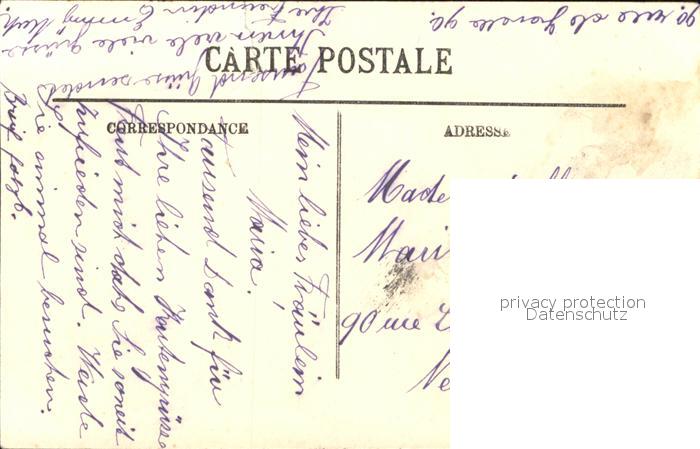 CARTE POSTALE
CORRESPONDANCE
ADRESSE
Mein liebes Fräulein
Maria!
Tausend Dank für
Ihre lieben Kartengrüsse
freut mich dass Sie soweit
zufrieden sind. Werde
Sie einmal besuchen.
Brief folgt.
Tausend Grüsse sendet
Ihnen viele Grüsse
Ihre Freundin
90 rue
Made
Mari
90 rue
Ne
privacy protection
Datenschutz